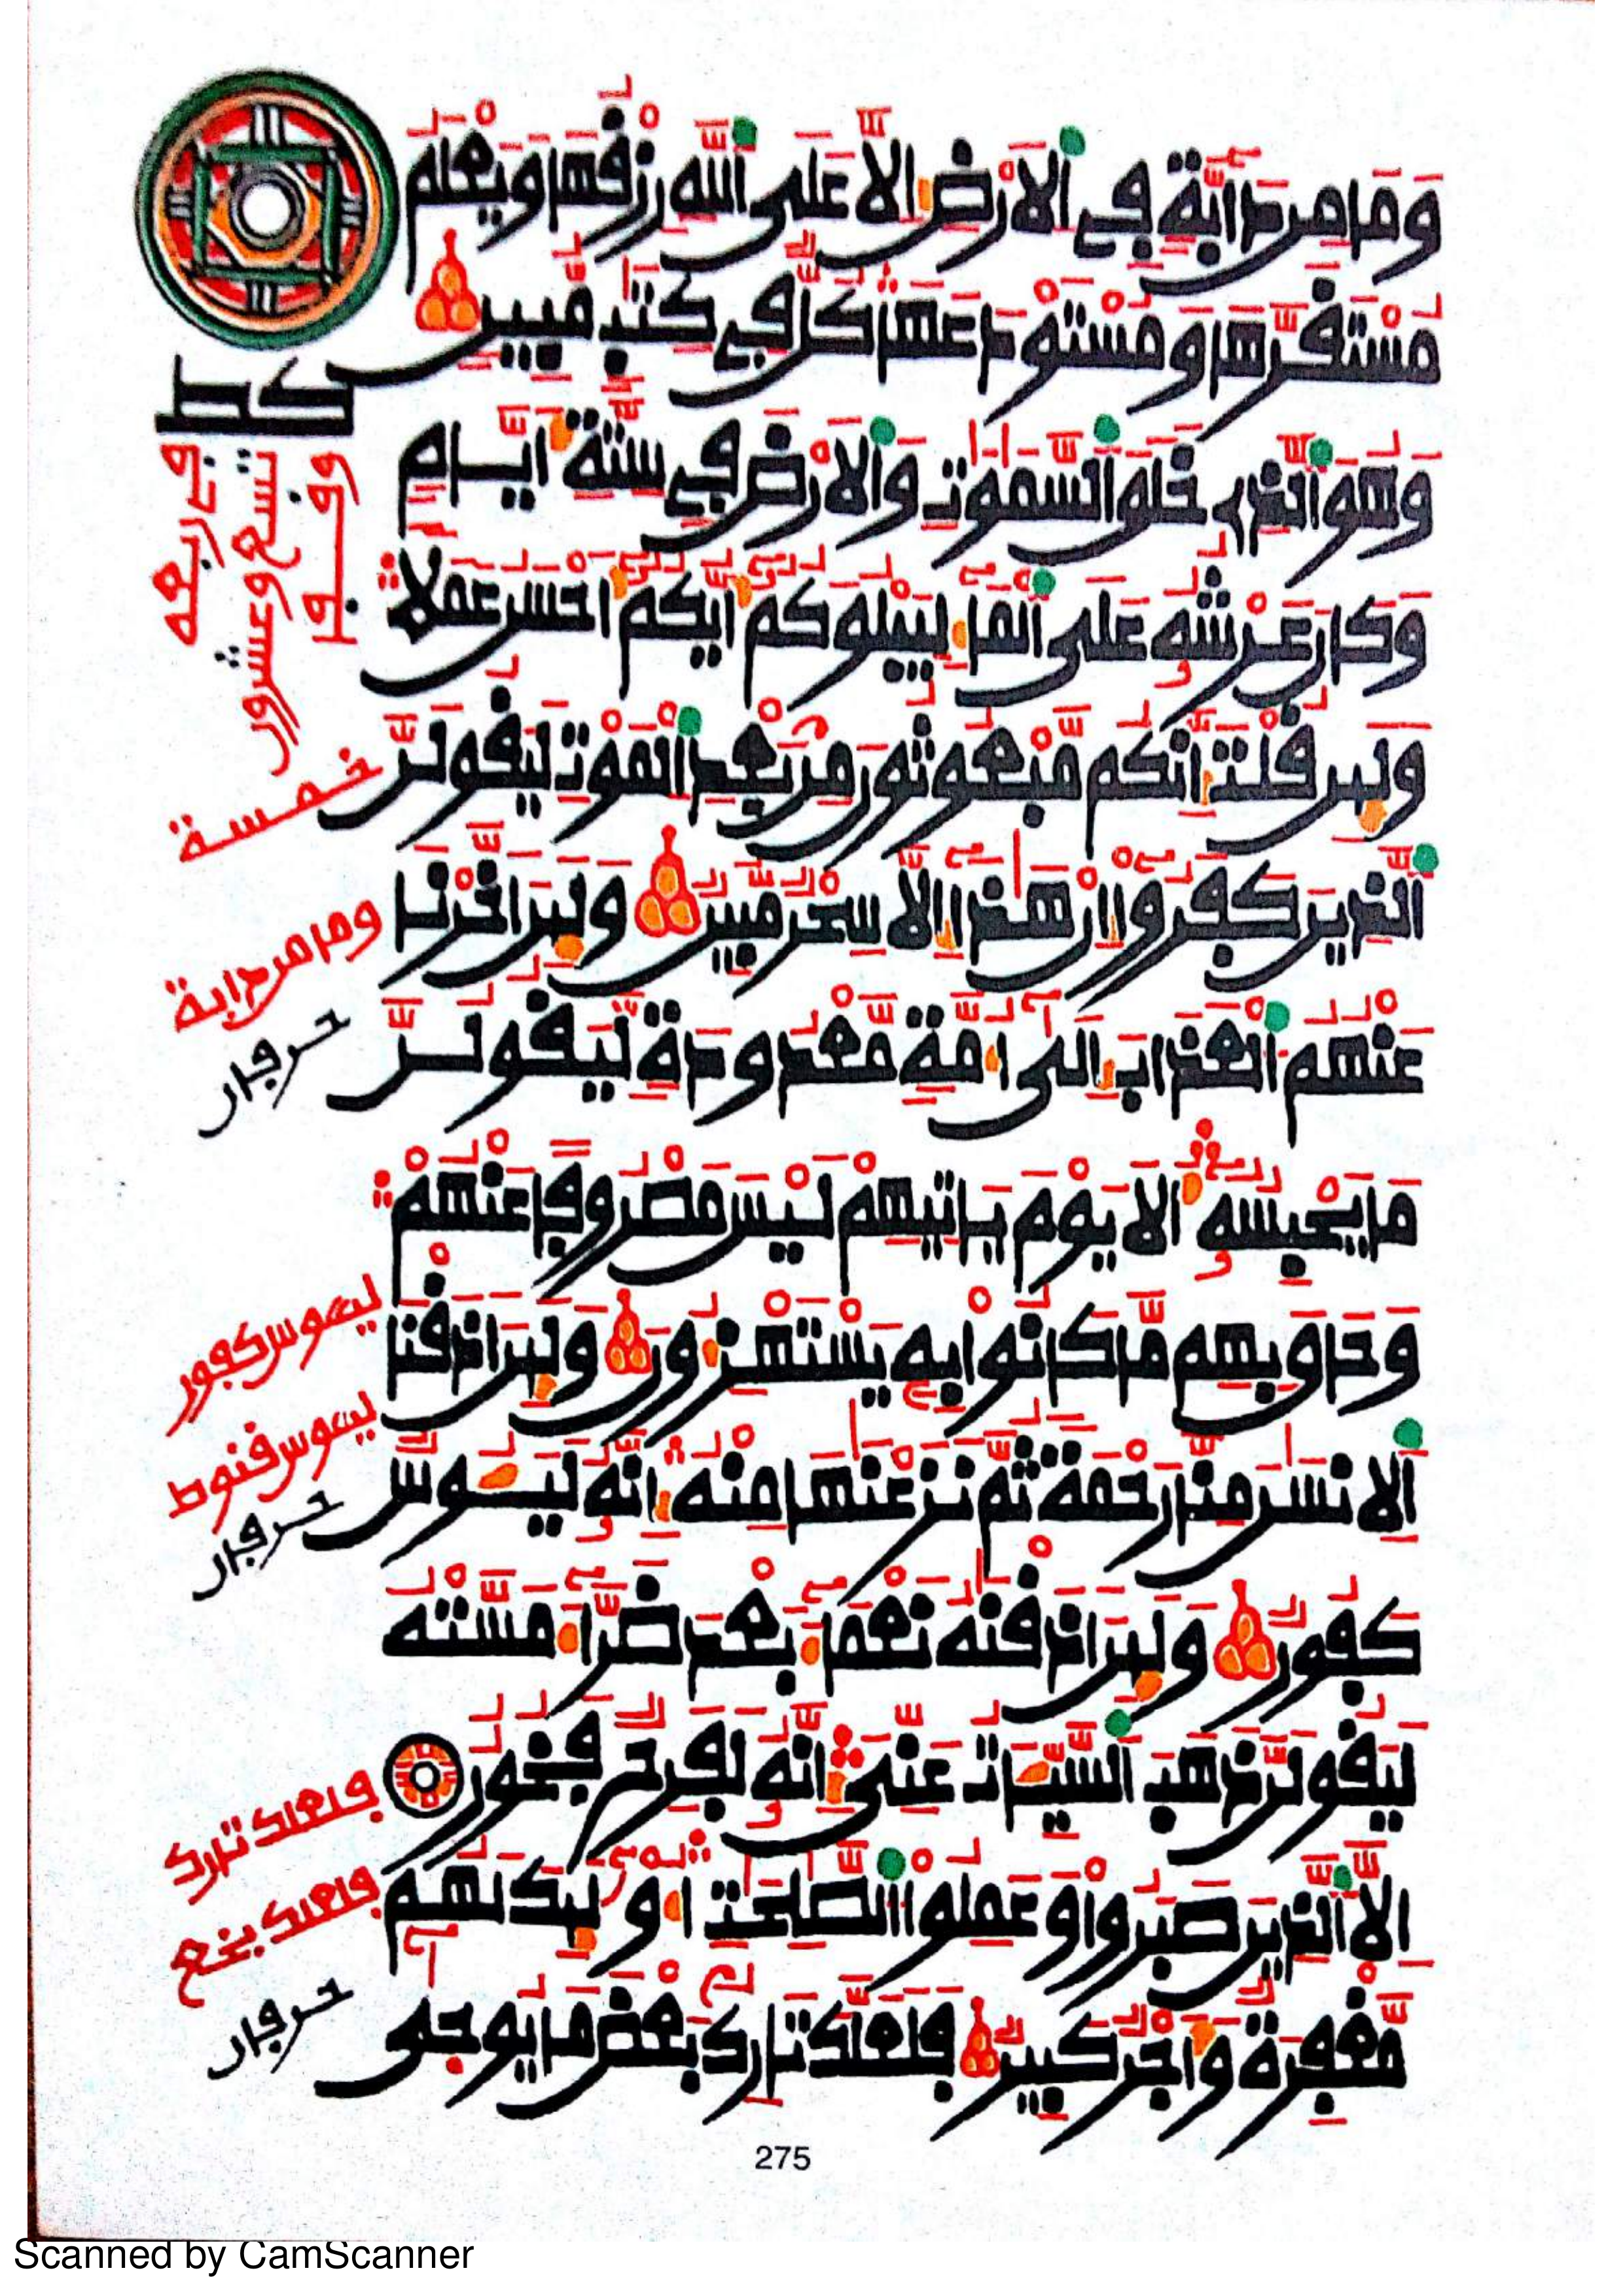 وَمَا مِن دَابَّةٍ فِي اَلَارْضِ إِلَّا عَلَى اَللَّهِ رِزْقُهَا وَيَعْلَمُ
مُسْتَقَرَّهَا وَمُسْتَوْدَعَهَا كُلٌّ فِي كِتَٰبٍ مُّبِينٍ
وَهُوَ اَلذِي خَلَقَ اَلسَّمَٰوَٰتِ وَالَارْضَ فِي سِتَّةِ أَيَّامٍ
وَكَانَ عَرْشُهُ عَلَى اَلْمَاءِ لِيَبْلُوَكُمُ أَيُّكُمُ أَحْسَنُ عَمَلًا
وَلَئِن قُلْتَ إِنَّكُم مَّبْعُوثُونَ مِنۢ بَعْدِ اِلْمَوْتِ لَيَقُولَنَّ
اَلذِينَ كَفَرُوا إِنْ هَٰذَا إِلَّا سِحْرٌ مُّبِينٌ وَلَئِنَ اَخَّرْنَا
عَنْهُمُ اُلْعَذَابَ إِلَىٰ أُمَّةٍ مَّعْدُودَةٍ لَّيَقُولُنَّ
مَا يَحْبِسُهُ أَلَا يَوْمَ يَاتِيهِمْ لَيْسَ مَصْرُوفًا عَنْهُمْ
وَحَاقَ بِهِم مَّا كَانُوا بِهِ يَسْتَهْزِءُونَ وَلَئِنَ اَذَقْنَا
اَلِانسَٰنَ مِنَّا رَحْمَةً ثُمَّ نَزَعْنَٰهَا مِنْهُ إِنَّهُ لَيَـُٔوسٌ
كَفُورٌ وَلَئِنَ اَذَقْنَٰهُ نَعْمَاءَ بَعْدَ ضَرَّاءَ مَسَّتْهُ
لَيَقُولَنَّ ذَهَبَ اَلسَّيِّـَٔاتُ عَنِّيَ إِنَّهُ لَفَرِحٌ فَخُورٌ
إِلَّا اَلذِينَ صَبَرُوا وَعَمِلُوا اُلصَّٰلِحَٰتِ أُوْلَٰئِكَ لَهُم
مَّغْفِرَةٌ وَأَجْرٌ كَبِيرٌ فَلَعَلَّكَ تَارِكُۢ بَعْضَ مَا يُوحَىٰ
كط
تسع وعشرون
خمسة
وما من دابة
حرفان
ليـوس كفور
ليـوس قنوط
حرفان
فلعلك تارك
فلعلك بخع
حرفان
275
Scanned by CamScanner